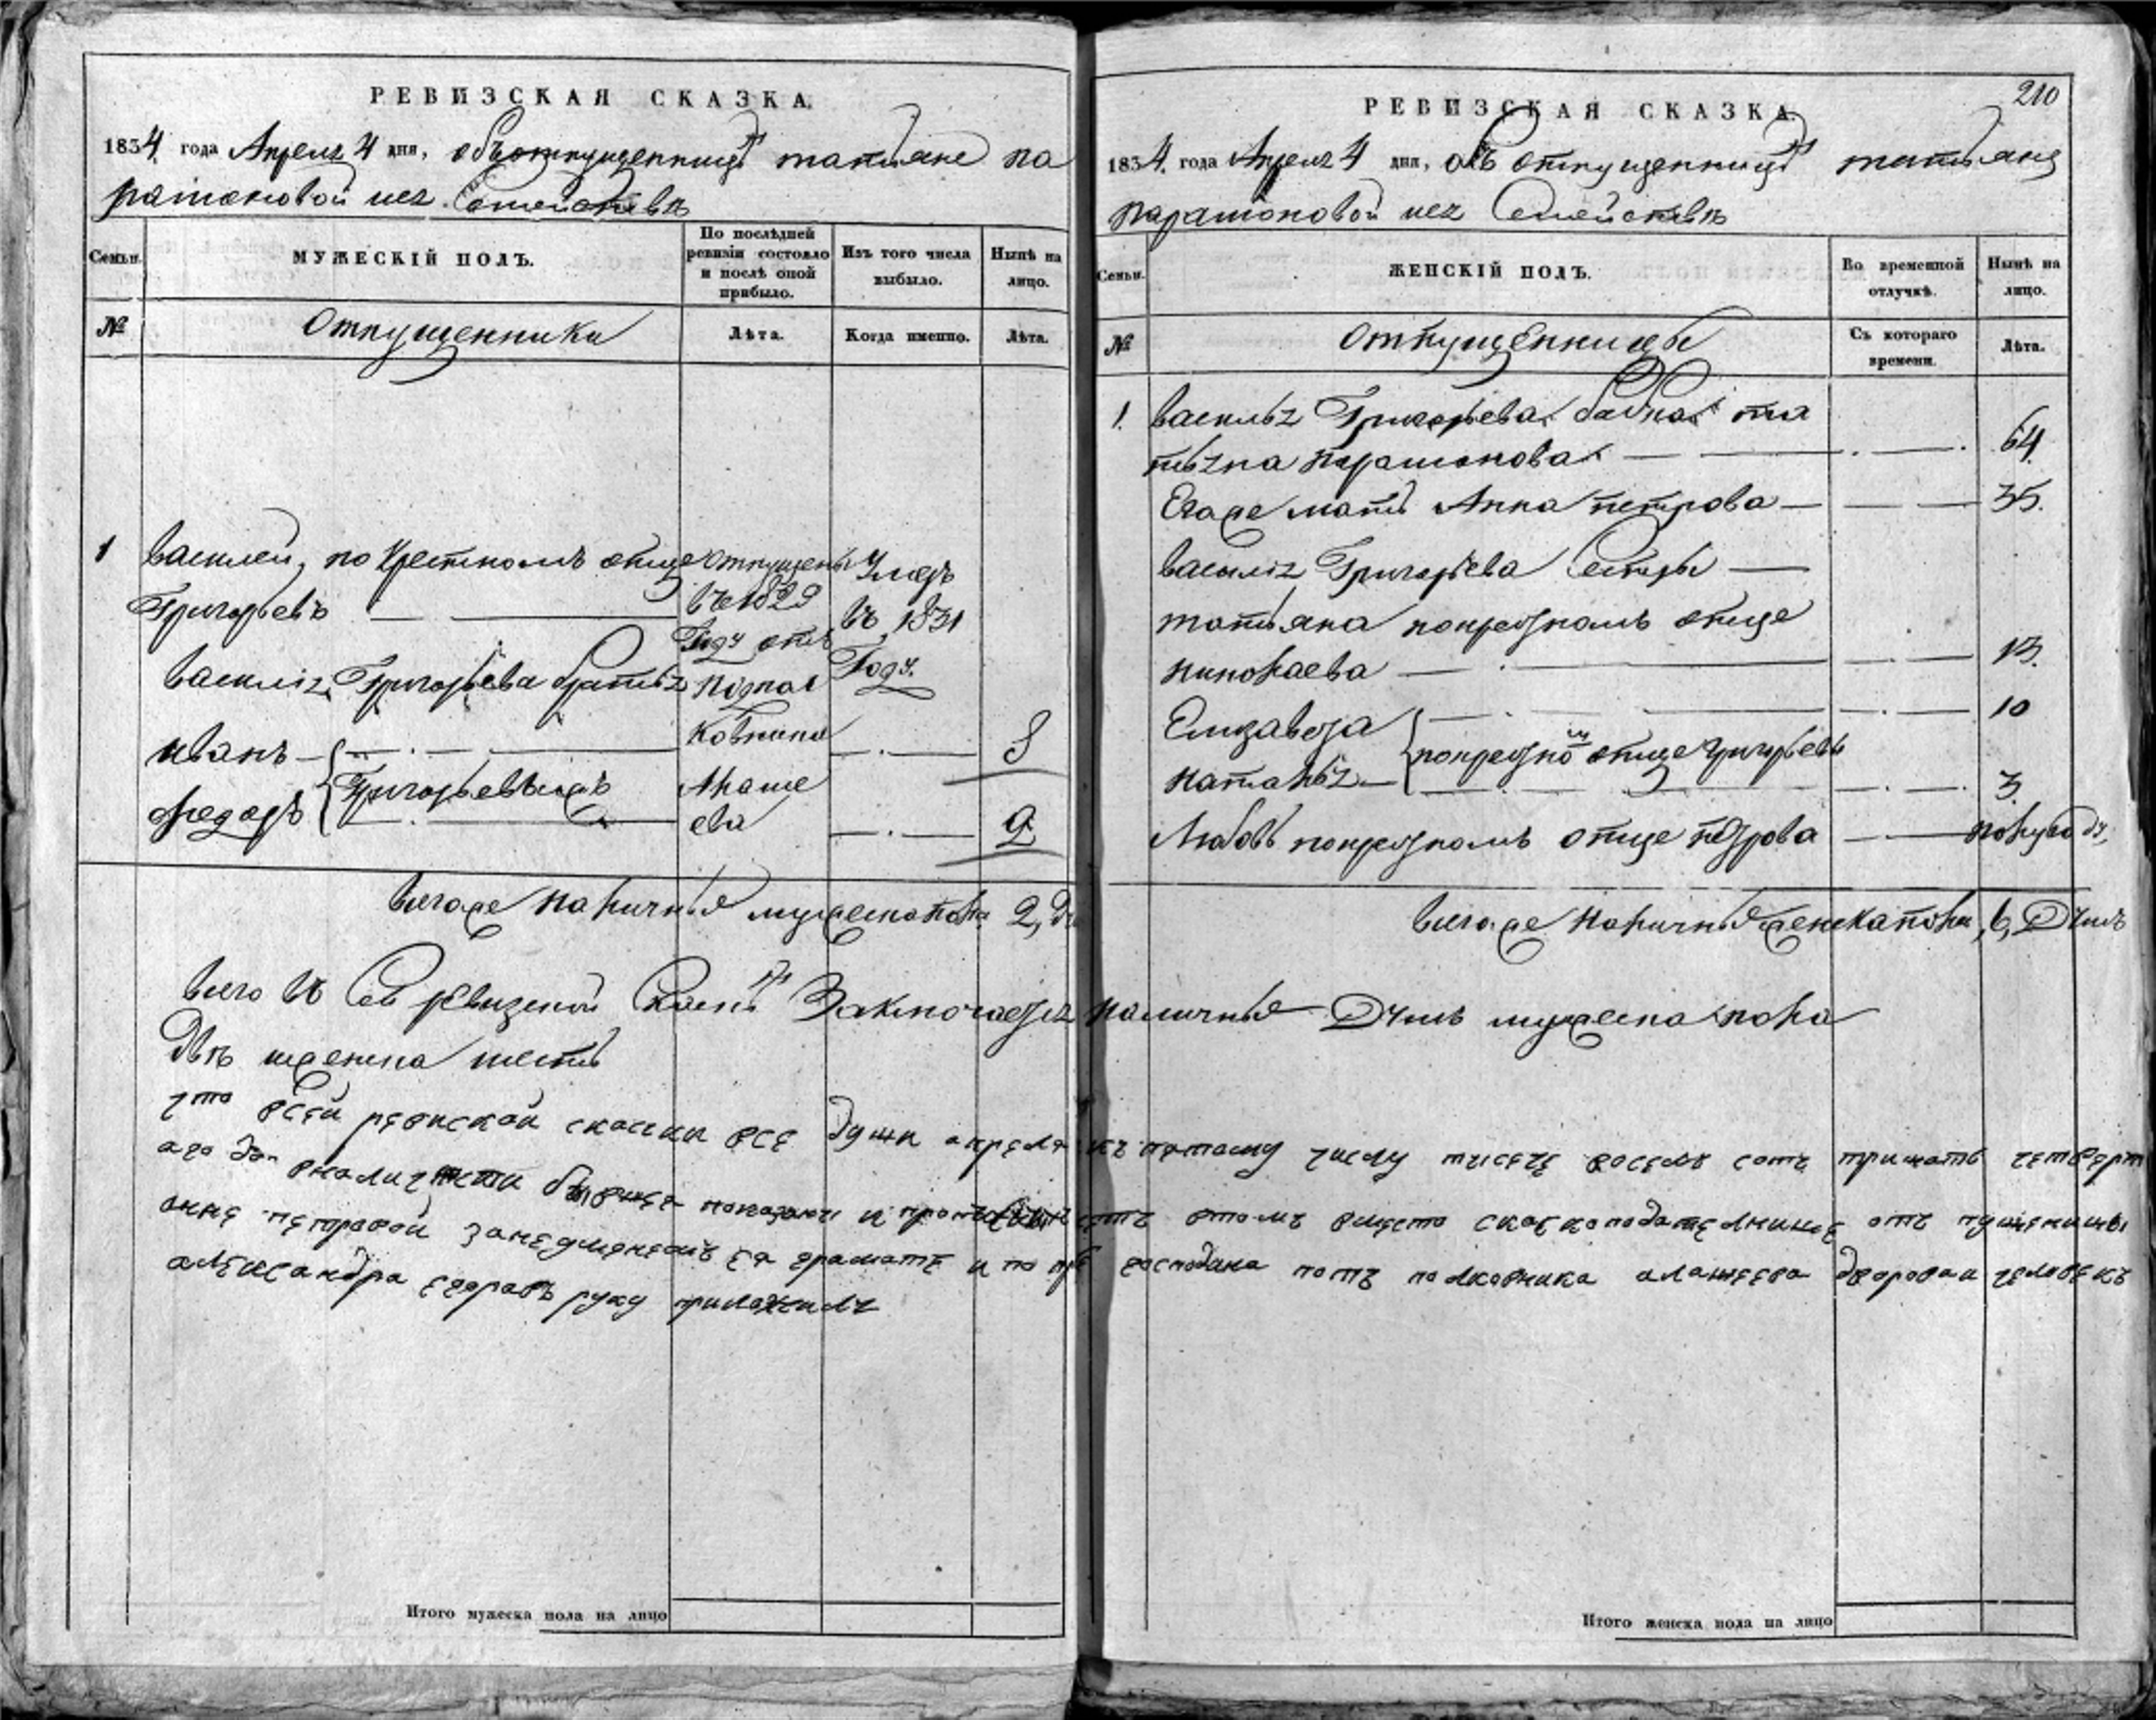 РЕВИЗСКАЯ СКАЗКА.
1834 года Апреля 4 дня, объ отпущенницѣ татьяне па
рамоновой и ея Семействѣ
Семьи.
МУЖЕСКІЙ ПОЛЪ.
По послѣдней ревизіи состояло и послѣ оной прибыло.
Изъ того числа выбыло.
Нынѣ на лицо.
№
Отпущенники
Лѣта.
Когда именно.
Лѣта.
1 Василей, по крестномъ отце
Григорьевъ
отпущены
въ 1829
Году отъ
подпол
ковника
Алаше
ева
Умеръ
въ 1831
Году.
Василія Григорьева братья
иванъ 8
Григорьевы
федоръ 2
всего же наличныя мужеска пола 2, ду
РЕВИЗСКАЯ СКАЗКА.
210
1834 года Апреля 4 дня, объ отпущенницѣ татьяне
парамоновой и ея Семействѣ
Семьи.
ЖЕНСКІЙ ПОЛЪ.
Во временной отлучкѣ.
Нынѣ на лицо.
№
отпущенницы
Съ котораго времени.
Лѣта.
1. василья Григорьева бабка та
тьяна парамонова 64.
Егоже мать Анна петрова 35.
василія Григорьева Сестры
татьяна покресномъ отце
николаева 13.
Елизавета 10
покресномъ отце григорьевы
наталья 3.
Любовь покресномъ отце петрова полугоду
всего же наличныя женска пола, 6, Душъ
всего въ Сей ревизской Скаскѣ Заключается наличныя Душъ мужеска пола
Двѣ и женска шесть
что всей ревиской скаски все души апреля къ потому числу тысече восемь сотъ тритцать четверт
аго
анне петровой
господина потъ полковника алашеева дворовай человекъ
александра егоровъ руку приложилъ
Итого мужеска пола на лицо
Итого женска пола на лицо